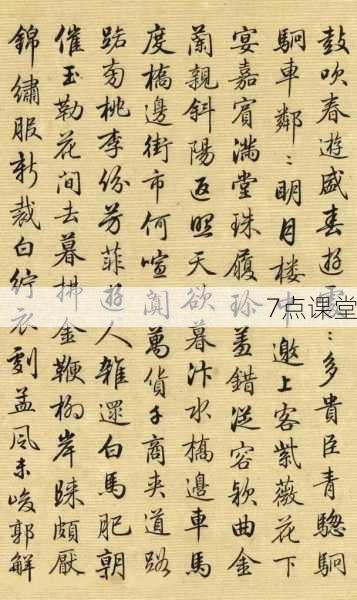 鼓吹春遊盛春遊處々多貴臣青驄駉
駉車鄰々明月樓邀上客紫薇花下
宴嘉賓滿堂珠履珍羞錯從容欵曲金
蘭親斜陽返照天欲暮汴水橋邊車馬
度橋邊街市何喧闐萬貨千商夾道路
南桃李份芳菲遊人雜遝白馬肥朝
催玉勒花間去暮拂金鞭柳岸頗厭
錦繡服新裁白紵衣劇孟風未峻郭解
7点课堂